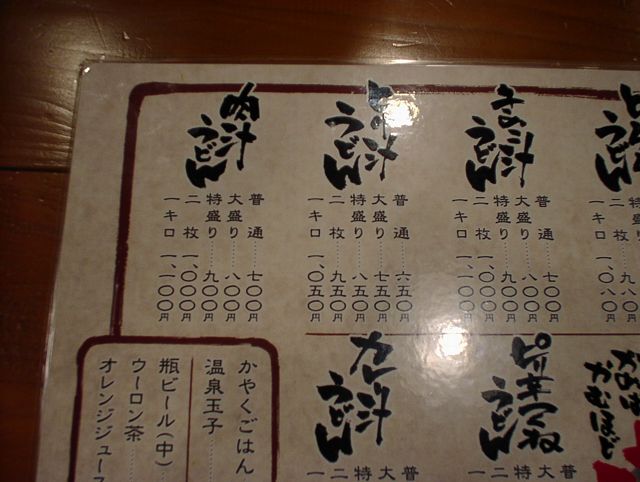 きのこ汁
うどん
普通……七〇〇円
大盛り……八〇〇円
特盛り……九〇〇円
二枚 一、〇〇〇円
一キロ 一、一〇〇円
汁
うどん
普通……六五〇円
大盛り……七五〇円
特盛り……八五〇円
二枚……九五〇円
一キロ 一、〇五〇円
肉汁
うどん
普通……七〇〇円
大盛り……八〇〇円
特盛り……九〇〇円
二枚 一、〇〇〇円
一キロ 一、一〇〇円
かむほど
ピリ辛つくね
うどん
普
大
特
二
一
カレー汁
うどん
普
大
特
二
一
かやくごはん
温泉玉子
瓶ビール(中)
ウーロン茶
オレンジジュース